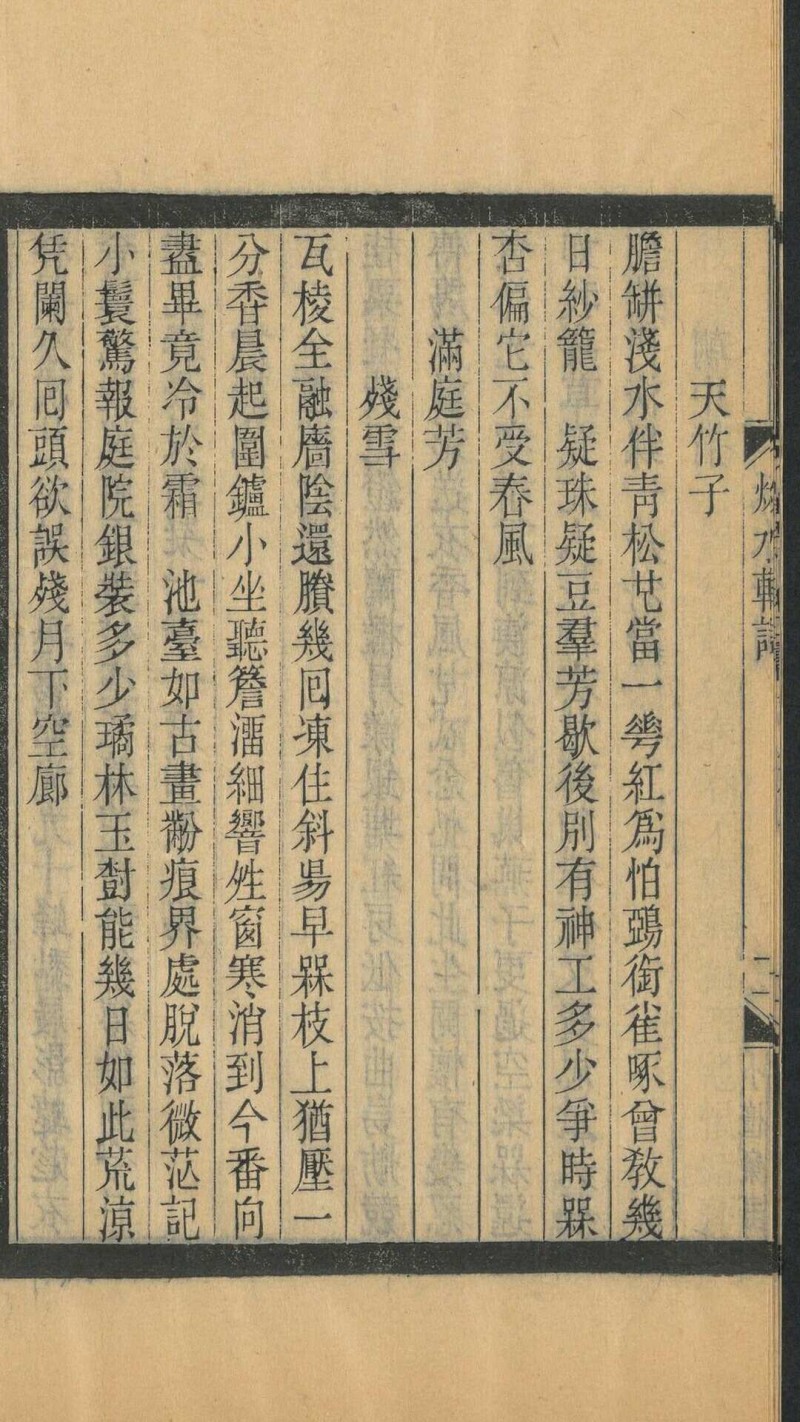 水軒詞
天竹子
膽缾淺水伴青松也當一荂紅爲怕鵶銜雀啄曾教幾
日紗籠　疑珠疑豆羣芳歇後別有神工多少爭時槑
杏偏它不受春風
滿庭芳
殘雪
瓦棱全融牆陰還賸幾囘凍住斜昜早槑枝上猶壓一
分香晨起圍鑪小坐聽簷溜細響甡窗寒消到今番向
盡畢竟冷於霜　池臺如古畫黺痕界處脫落微茫記
小鬟驚報庭院銀裝多少璚林玉尌能幾日如此荒涼
凭闌久囘頭欲誤殘月下空廊